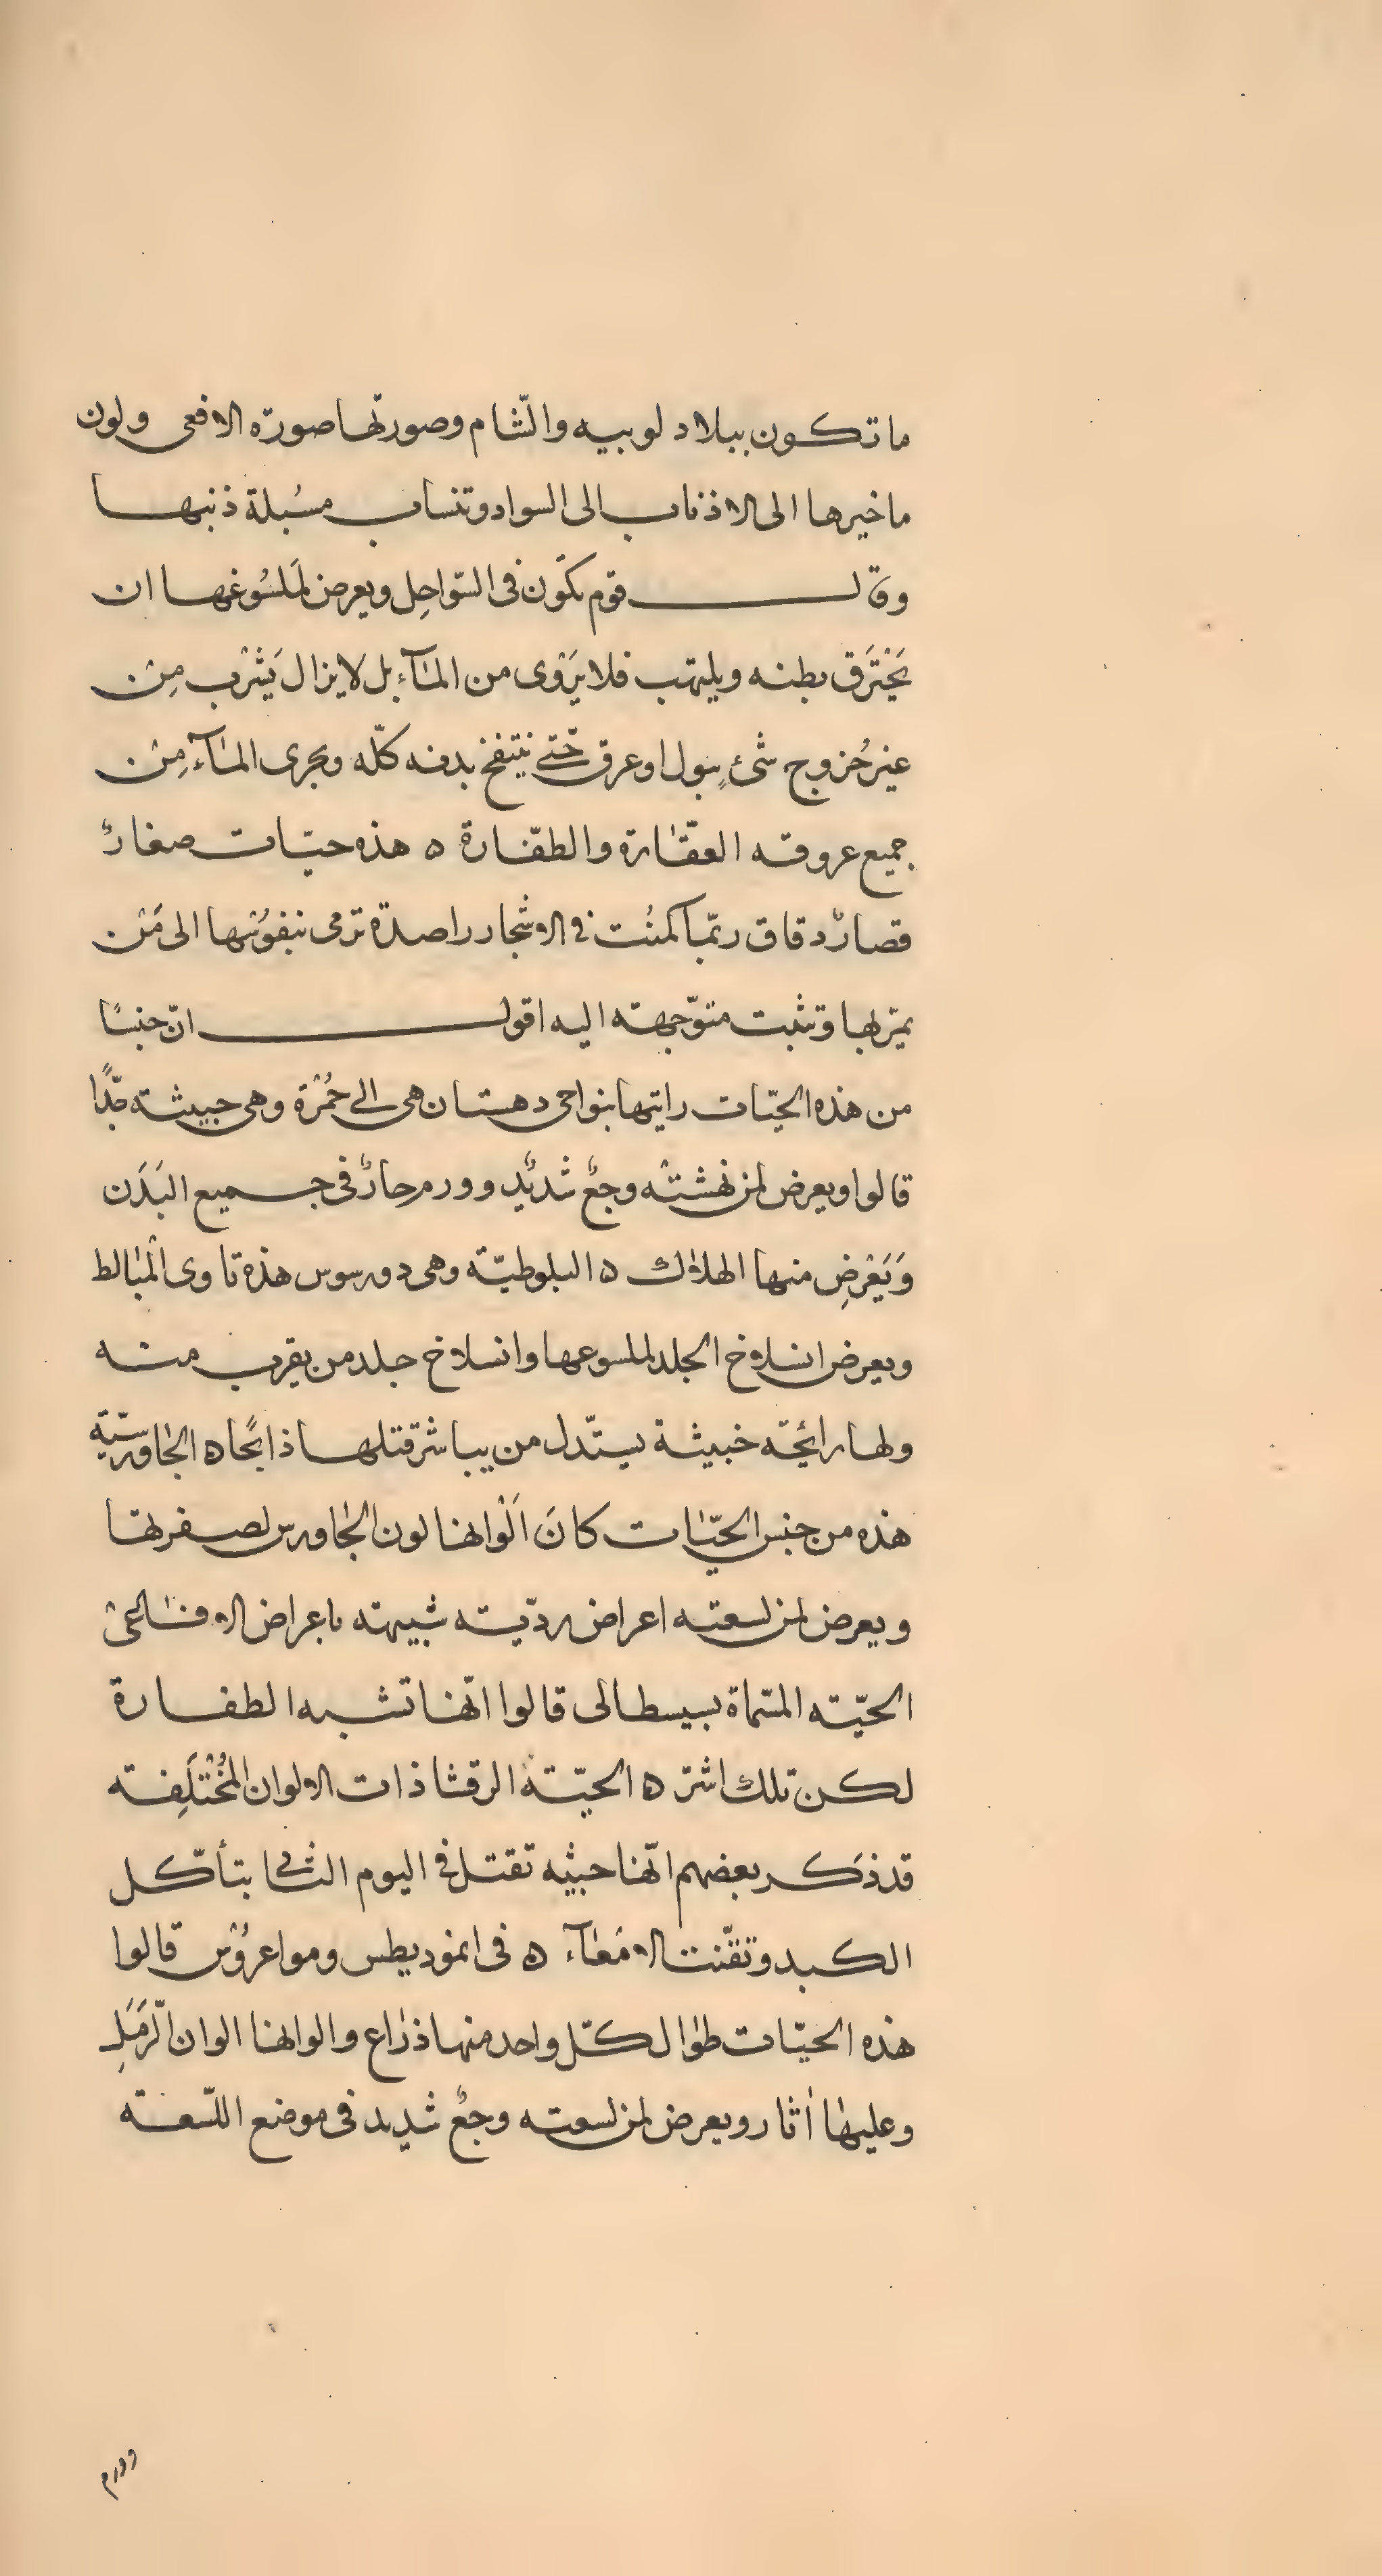 ما تكون ببلاد لوبيه والشّام وصورتها صورة الافعى ولون
ماخيرها الى الاذناب الى السواد وتنساب مسُبلة ذنبها
وقال قوم تكَون فى السّواحِل ويعرض لملسُوعها ان
يَحْتَرَق بطنه ويلتهب فلا يَرْوى من المآء بل لا يزال يَشْرب مِنْ
غير خُروج شئٍ ببول او عرق حتّى ينتفخ بدنه كلّه ويجرى المآء مِنْ
جميع عروقه العقّارة والطفّارة ه هذه حيّات صغارٌ
قصارٌ دقاق ربّما كمنُت فى الاشجار راصدة ترمى بنفوُسها الى مَنْ
يمرّ بها وتثبت متوّجهة اليه اقول انّ جنسًا
من هذه الحيّات رايتها بنواحى دهستان هى الى حُمْرة وهى خبيثة جّدًا
قالوا ويعرض لمن نهشتْه وجعٌ شديٌد وورم حارٌ فى جميع البَدَن
وَيَعْرضِ منها الهلاك ه البلوطيّة وهى دورسوس هذه تاوى المْبَالط
ويعرض انسلاخ الجلد لملسوعها وانسلاخ جلد من يقرب منه
ولها رائحّة خبيثة يستّدل من يباشر قتلها ذابحًا ه الجاورسّيّة
هذه من جنس الحيّات كانَ اَلْوانها لون الجاورس لصفرتها
ويعرض لمن لسعته اعراض ردّية شبيهة باعراض الافاعىْ
الحيّة المسّماة بسيسطالى قالوا انّها تشبه الطفارة
لكن تلك اشرّ ه الحيّة الرقشا ذات الالوان المُخْتَلِفة
قد ذكَر بعضهم انّها خبيثه تقتل فى اليوم الثانى بتأكّل
الكبد وتفّتت الامْعآء ه فى امنوديطس ومواعروُس قالوا
هذه الحيّات طوال كلّ واحد منها ذراع والوانها الوان الرّمَلِ
وعليها اٰثار ويعرض لمن لسعته وجعٌ شديد فى موضع اللّسعة
وورم